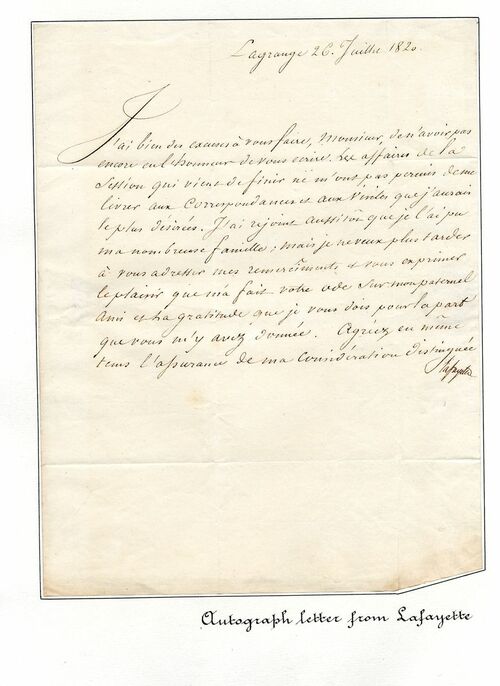 Lagrange 26 Juillet 1820.
J'ai bien des excuses à vous faire, Monsieur de n'avoir pas
encore eu l'honneur de vous écrire. Les affaires de la
Session qui vient de finir ne m'ont pas permis de me
livrer aux Correspondances et aux Visites que j'aurais
le plus désirées. J'ai rejoint aussitôt que je l'ai pu
ma nombreuse famille; mais je ne veux plus tarder
à vous adresser mes remerciments et vous exprimer
le plaisir que m'a fait votre ode Sur mon paternel
Ami et la gratitude que je vous dois pour la part
que vous m'y avez donnée. Agréez en même
tems l'assurance de ma Considération distinguée
Lafayette
Autograph letter from Lafayette